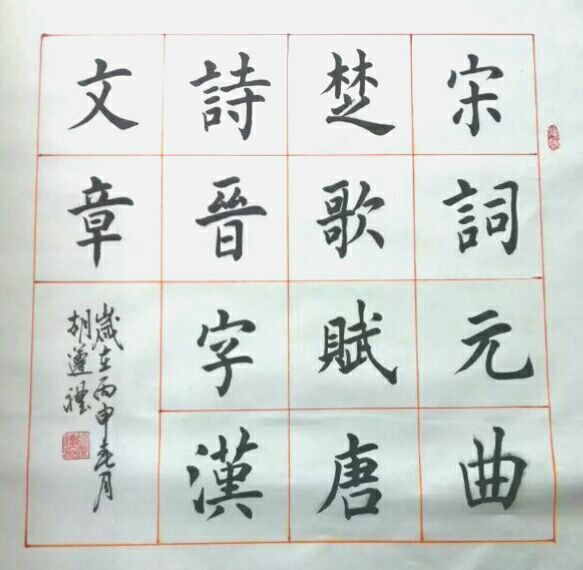 宋詞元曲
楚歌賦唐
詩晉字漢
文章
歲在丙申春月
胡遵禮